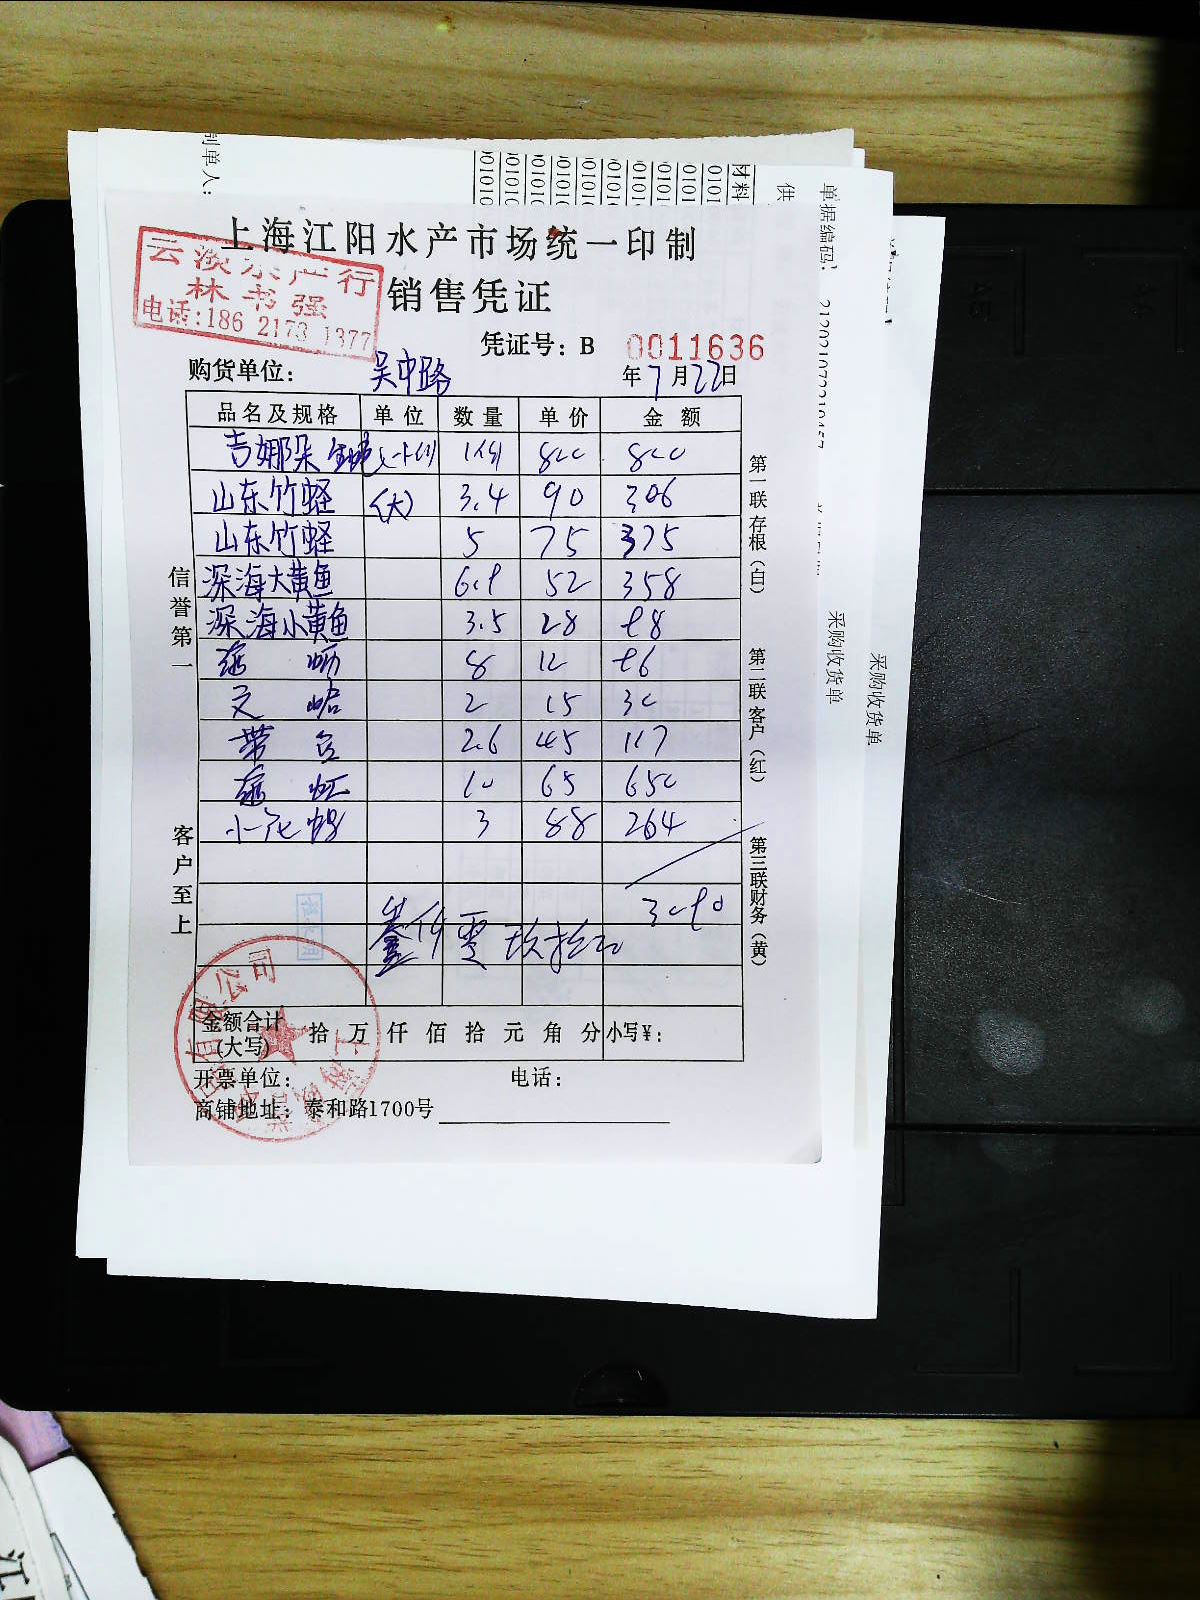 制单人:
材料
供
单据编码:
采购收货单
采购收货单
上海江阳水产市场统一印制
云淡水产行
林书强
电话:186 2173 1377
销售凭证
凭证号: B 0011636
购货单位: 吴中路
年7月22日
品名及规格 单位 数量 单价 金额
吉娜朵 800 800
山东竹蛏 (大) 3.4 90 306
山东竹蛏 5 75 375
深海大黄鱼 6.9 52 358
深海小黄鱼 3.5 28 98
8 12 96
文蛤 2 15 30
带鱼 2.6 45 117
10 65 650
3 88 264
3090
叁仟零玖拾元
信誉第一
客户至上
第一联存根(白)
第二联客户(红)
第三联财务(黄)
金额合计(大写) 拾 万 仟 佰 拾 元 角 分 小写¥:
开票单位: 电话:
商铺地址: 泰和路1700号
有限公司